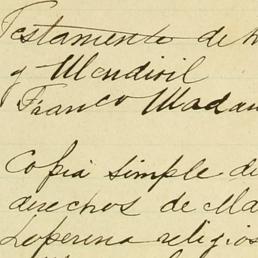 Testamento de
y Mendivil
Franco Madan
Copia simple de
derechos de Ma
Loperena religios